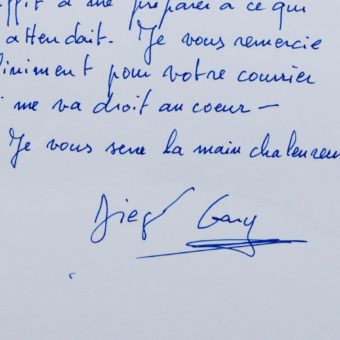 suffit à me préparer à ce qui
attendait. Je vous remercie
finiment pour votre courrier
i me va droit au coeur —
Je vous serre la main chaleureu
Diego Gary